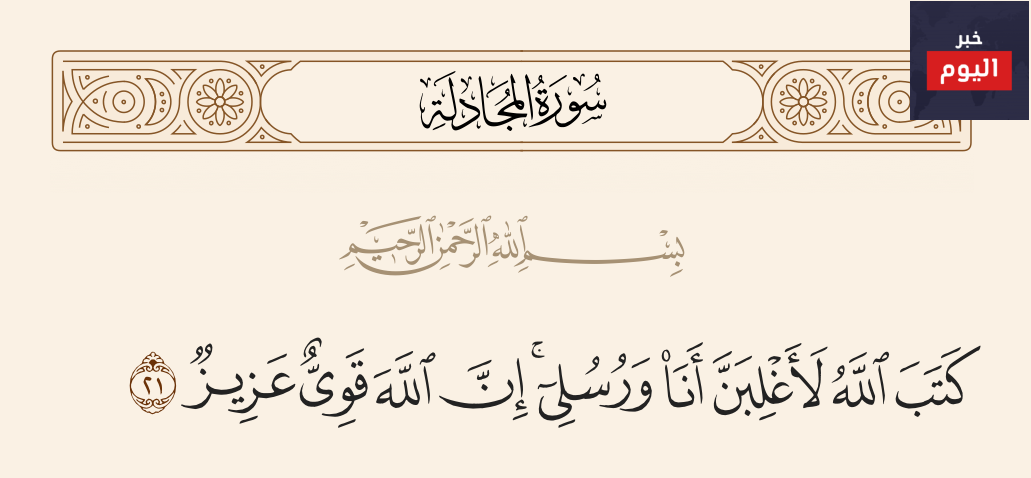 خبر
اليوم
سُورَةُ المُجَادلَةِ
بِسْمِ ٱللَّهِ ٱلرَّحْمَٰنِ ٱلرَّحِيمِ
كَتَبَ ٱللَّهُ لَأَغْلِبَنَّ أَنَا۠ وَرُسُلِىٓۚ إِنَّ ٱللَّهَ قَوِىٌّ عَزِيزٌ ٢١